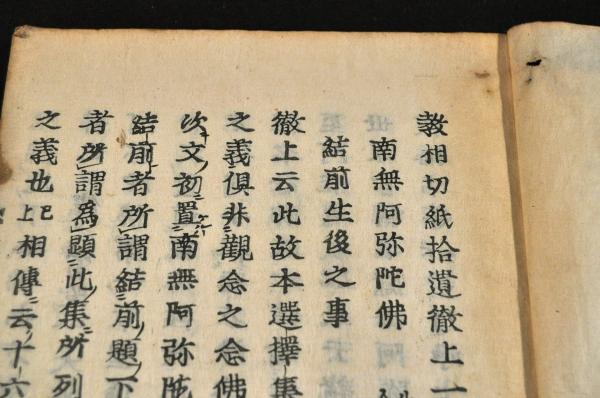 教相切紙拾遺徹上一
南無阿弥陀佛
結前生後之事
徹上云此故本選擇集
之義俱非觀念之念佛
次文初置南無阿弥陀
結前者所謂結前題下
者所謂為顯此集所列
之義也已上相傳云十六